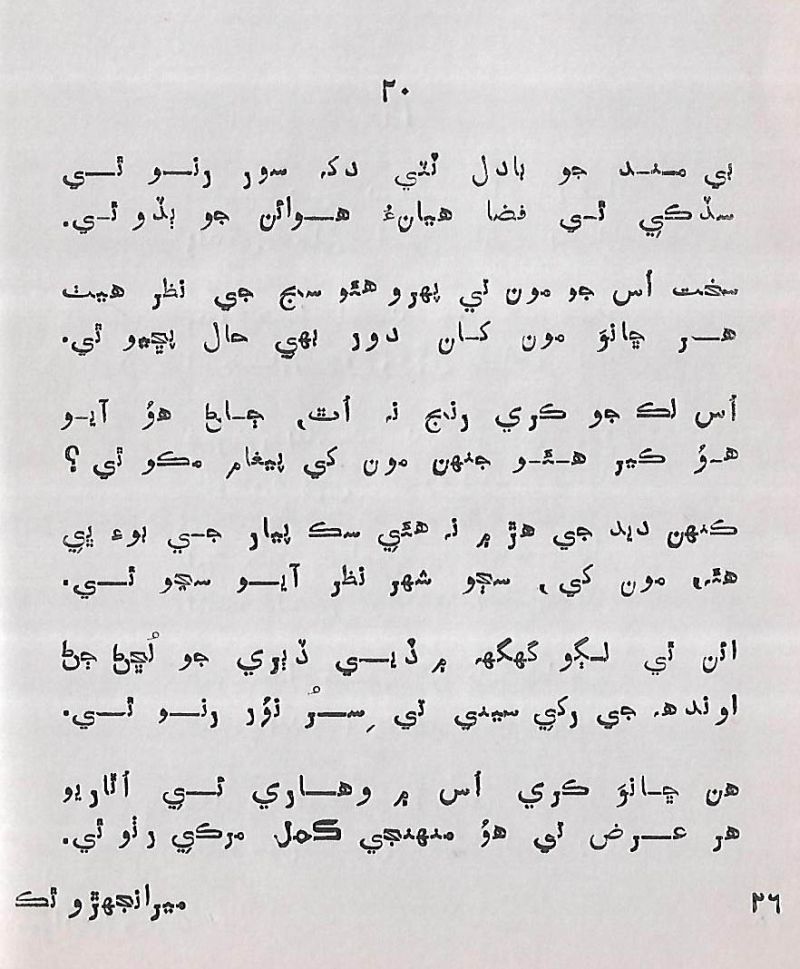 ۲۰
بي مند جو بادل ٿئي دک سور رنو ٿي
سڏڪي ٿي فضا هيانءُ هوائن جو ٻڏو ٿي.
سخت اُس جو مون تي پهرو هئو سج جي نظر هيٺ
هر ڇانوَ مون کان دور بهي حال پڇيو ٿي.
اُس لڪ جو ڪري رنج نہ اُٿ، ڄاڻ هوُ آيو
هوُ ڪير هئو جنهن مون کي پيغام مڪو ٿي ؟
ڪنهن ديد جي هڙ ۾ نہ هئي سڪ پيار جي بوء ڀي
هئہ، مون کي، سڄو شهر نظر آيو سڃو ٿي.
ائن ٿي لڳو گهگهہ ۾ ڏيي ڏٻري جو لُڇڻ ڄڻ
اوندهہ جي رکي سيني تي سِرُ نوُر رنو ٿي.
هن ڇانوَ ڪري اُس ۾ وهاري ٿي اُٿاريو
هر عرض تي هوُ منهنجي ڪمل مرڪي رٺو ٿي.
۲٦
ميرانجهڙو ٿڪ